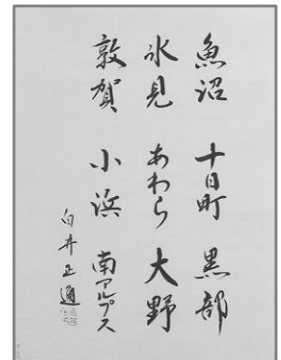 魚沼 十日町 黒部
氷見 あわら 大野
敦賀 小浜 南アルプス
白井正通